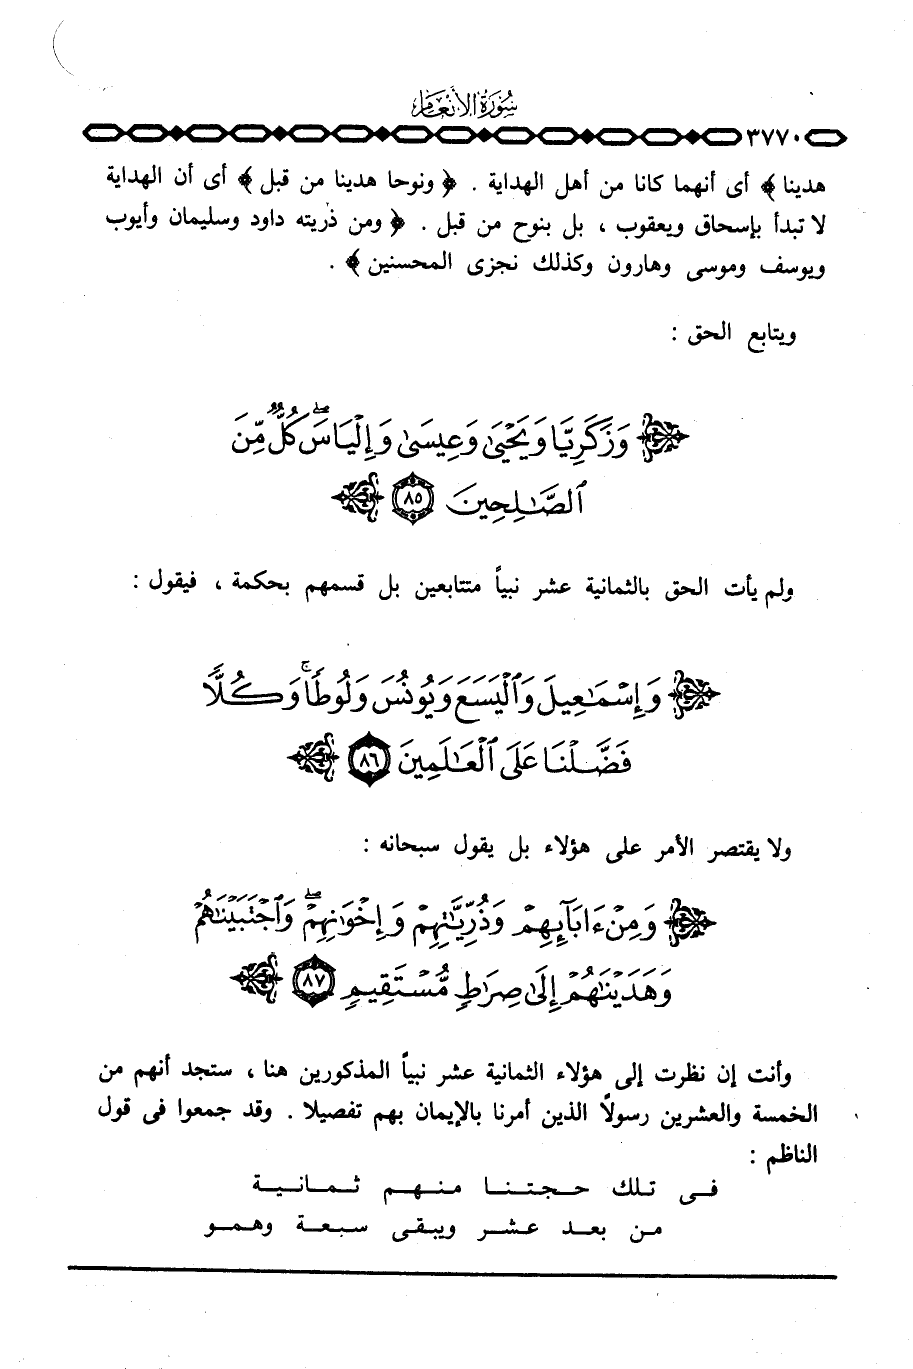 سُورَةُ الأَنْعَامِ
٣٧٧٠
هدينا ﴾ أى أنهما كانا من أهل الهداية . ﴿ ونوحا هدينا من قبل ﴾ أى أن الهداية
لا تبدأ بإسحاق ويعقوب ، بل بنوح من قبل . ﴿ ومن ذريته داود وسليمان وأيوب
ويوسف وموسى وهارون وكذلك نجزى المحسنين ﴾ .
ويتابع الحق :
﴿ وَزَكَرِيَّا وَيَحْيَىٰ وَعِيسَىٰ وَإِلْيَاسَ ۖ كُلٌّ مِّنَ
ٱلصَّـٰلِحِينَ ٨٥ ﴾
ولم يأت الحق بالثمانية عشر نبياً متتابعين بل قسمهم بحكمة ، فيقول :
﴿ وَإِسْمَـٰعِيلَ وَٱلْيَسَعَ وَيُونُسَ وَلُوطًا ۚ وَكُلًّا
فَضَّلْنَا عَلَى ٱلْعَـٰلَمِينَ ٨٦ ﴾
ولا يقتصر الأمر على هؤلاء بل يقول سبحانه :
﴿ وَمِنْ ءَابَآئِهِمْ وَذُرِّيَّـٰتِهِمْ وَإِخْوَٰنِهِمْ ۖ وَٱجْتَبَيْنَـٰهُمْ
وَهَدَيْنَـٰهُمْ إِلَىٰ صِرَٰطٍ مُّسْتَقِيمٍ ٨٧ ﴾
وأنت إن نظرت إلى هؤلاء الثمانية عشر نبياً المذكورين هنا ، ستجد أنهم من
الخمسة والعشرين رسولاً الذين أمرنا بالإيمان بهم تفصيلا . وقد جمعوا فى قول
الناظم :
فى تلك حجتنا منهم ثمانية
من بعد عشر ويبقى سبعة وهمو